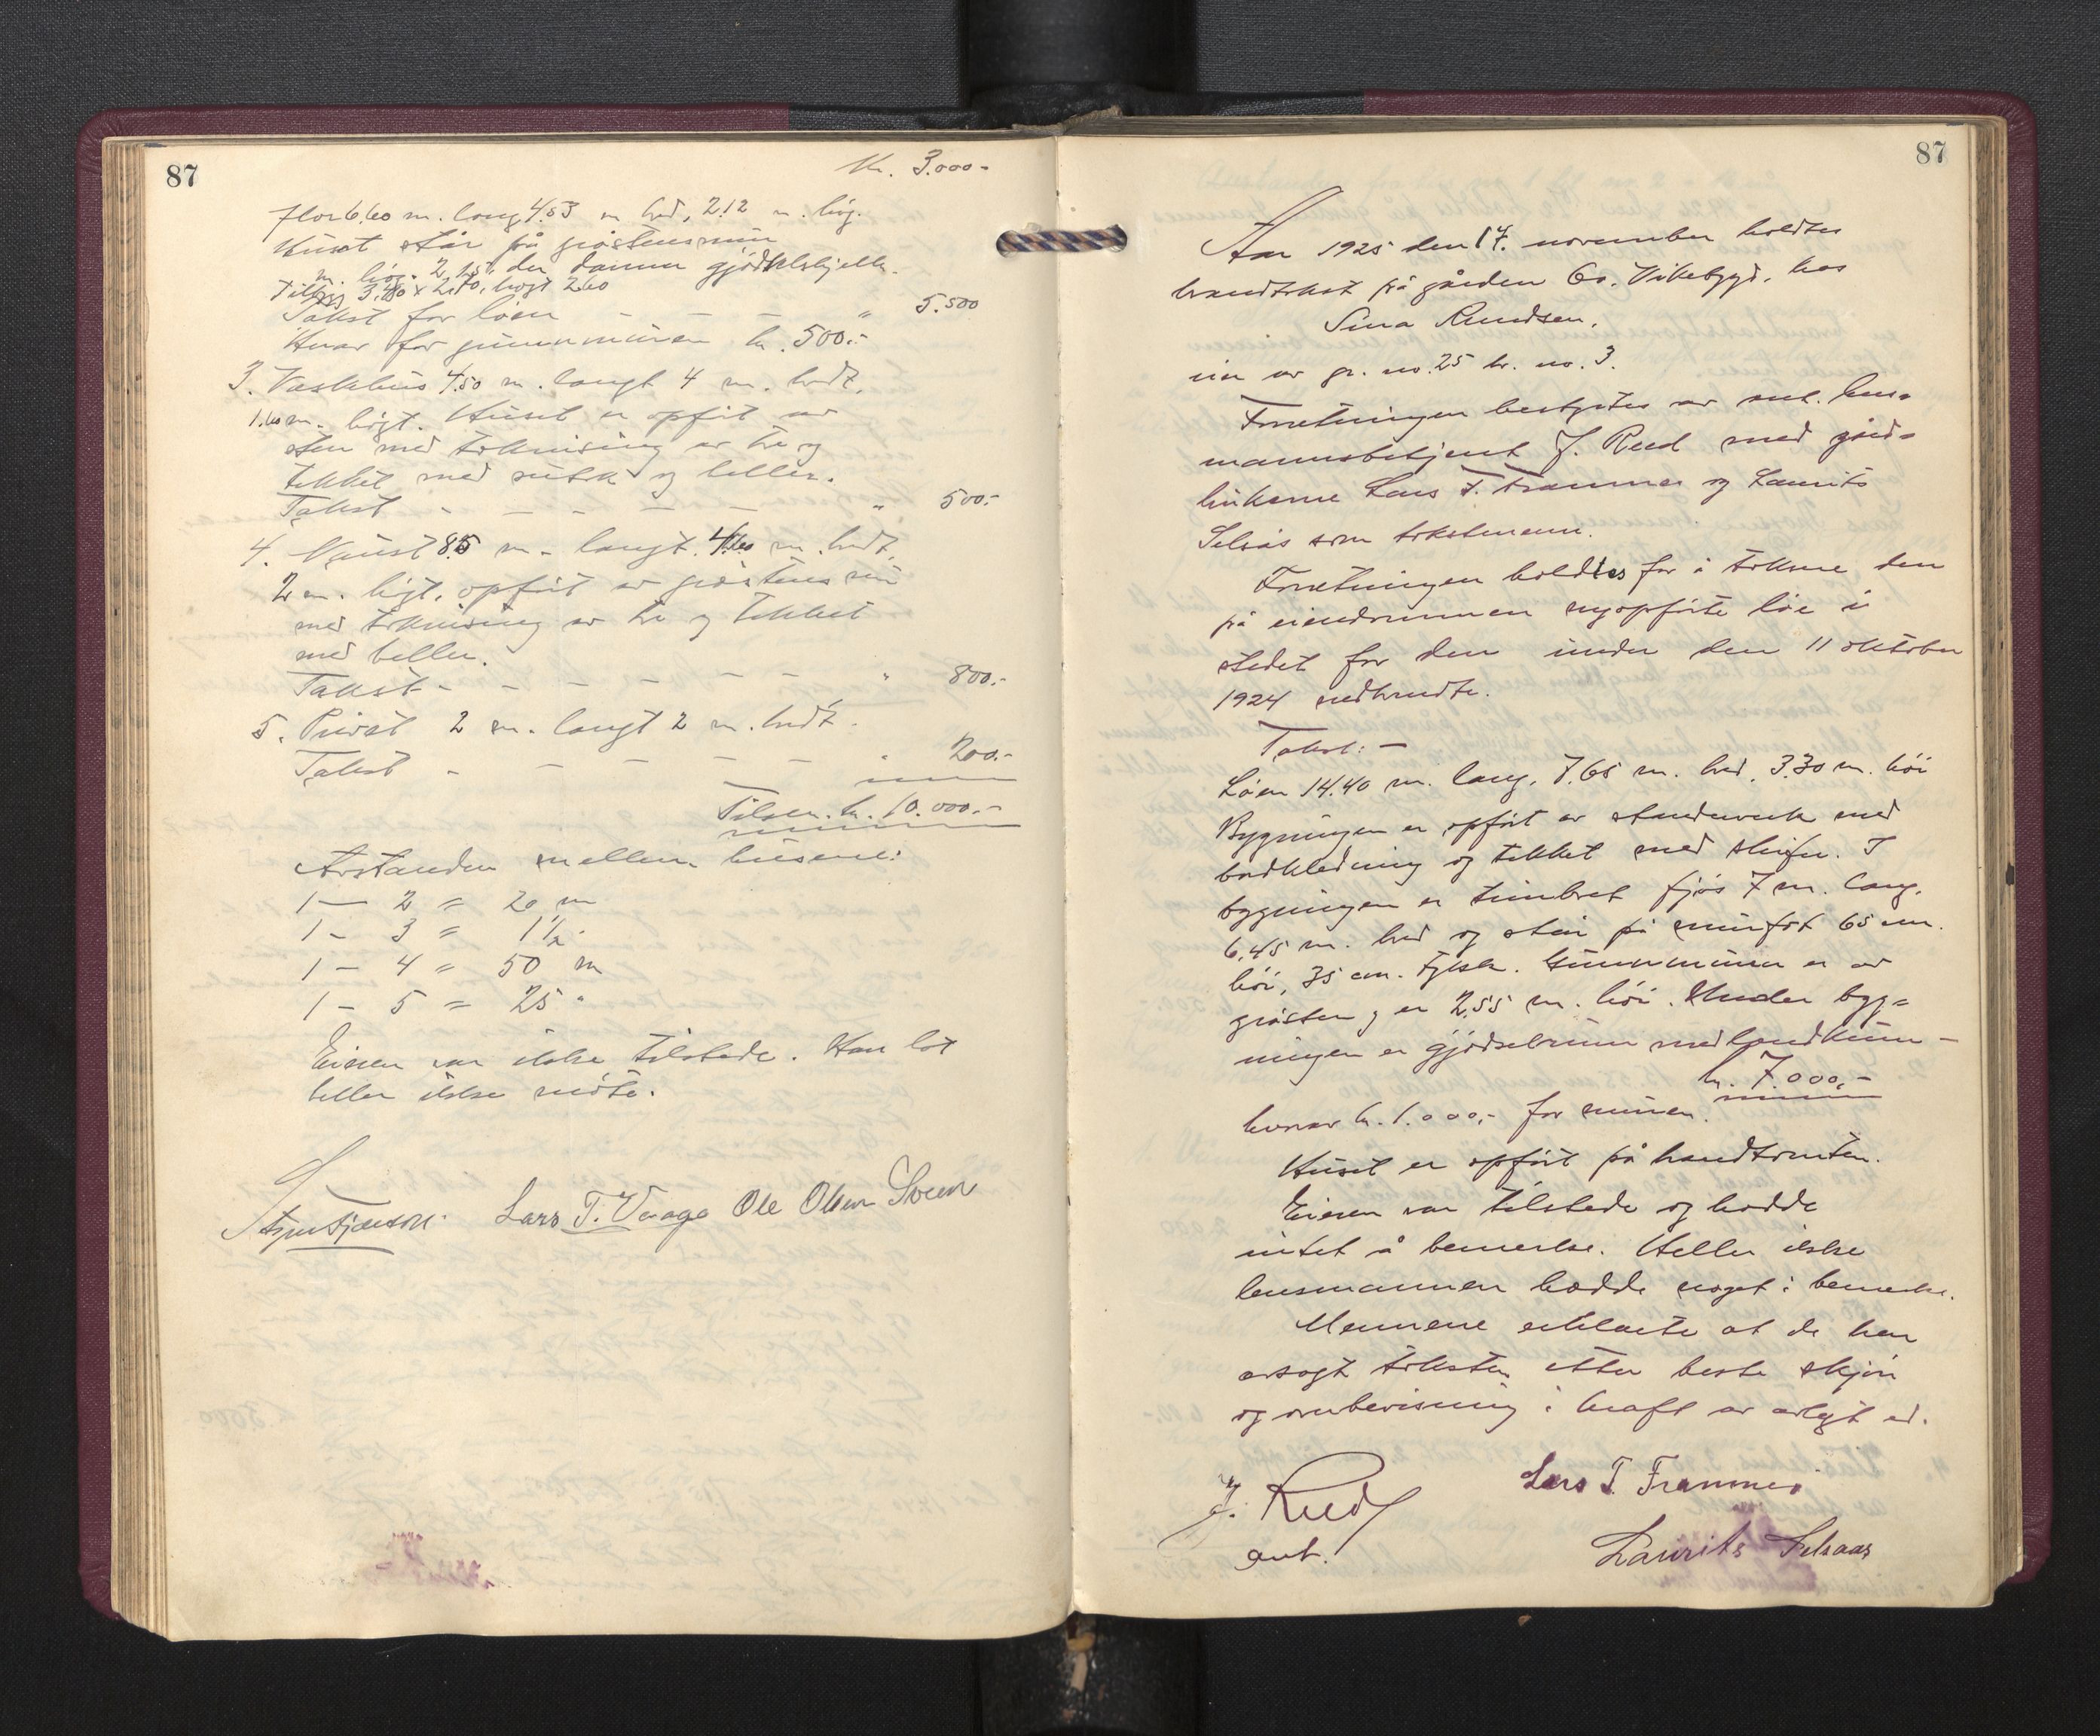 87
Kr. 3.000-
flor 6.60 m. lang 4.53 m bred, 2.12 m. høg.
Huset står på gråstensmur
m. høg. 2,15, der danner gjødselskjeller.
Tilbygg 3,40 x 2,70, høgt 2.60
Takst for løen - - - " 5.500
Herav for grunnmuren kr. 500.-
3. Vaskhus 4.50 m. langt 4 m. bredt,
1.60 m. høgt. Huset er opført av
sten med takreising av tre og
tekket med sutak og heller.
Takst - - - - - " 500.-
4. Naust 8.5 m. langt. 4.60 m. bredt,
2 m. høgt, opført av gråstens mur
med takreising av tre og tekket
med heller.
Takst - - - - - - - " 800.-
5. Privet 2 m. langt 2 m. bredt.
Takst - - - - - " 200.-
Tilsm. kr. 10.000.-
Avstanden mellem husene:
1 - 2 = 20 m
1 - 3 = 1½ "
1 - 4 = 50 m
1 - 5 = 25 "
Eieren var ikke tilstede. Han lot
heller ikke møte.
Lars T. Vaage Ole Olsen Svein
87
Aar 1925 den 17. november holdtes
brandtakst på gården Ø. Vikebygd, hos
Sina Knudsen,
eier av gr. no. 25 br. no. 3.
Forretningen bestyrtes av aut. lens-
mannsbetjent J. Reed med gård-
brukerne Lars T. Framnes og Laurits
Selsås som takstmenn.
Forretningen holdtes for å taksere den
på eiendommen nyopførte løe i
stedet for den under den 11 oktober
1924 nedbrendte.
Takst: -
Løen 14.40 m. lang, 7.65 m. bred, 3.30 m. høi
Bygningen er opført av stenderverk med
bordkledning og tekket med skifer. I
bygningen er timbret fjøs 7 m. lang,
6,45 m. bred og står på murfot 65 cm.
høi, 35 cm. tykk. Grunnmuren er av
gråsten og er 2,55 m. høi. Under byg-
ningen er gjødselrum med landkum -
kr. 7.000,-
hvorav kr. 1.000,- for muren.
Huset er opført på brandtomten.
Eieren var tilstede og hadde
intet å bemerke. Heller ikke
lensmannen hadde noget å bemerke.
Mennene erklærte at de har
avsagt taksten etter beste skjøn
og overbevisning i kraft av avlagt ed.
J. Reed
aut.
Lars T. Framnes
Laurits Selsaas